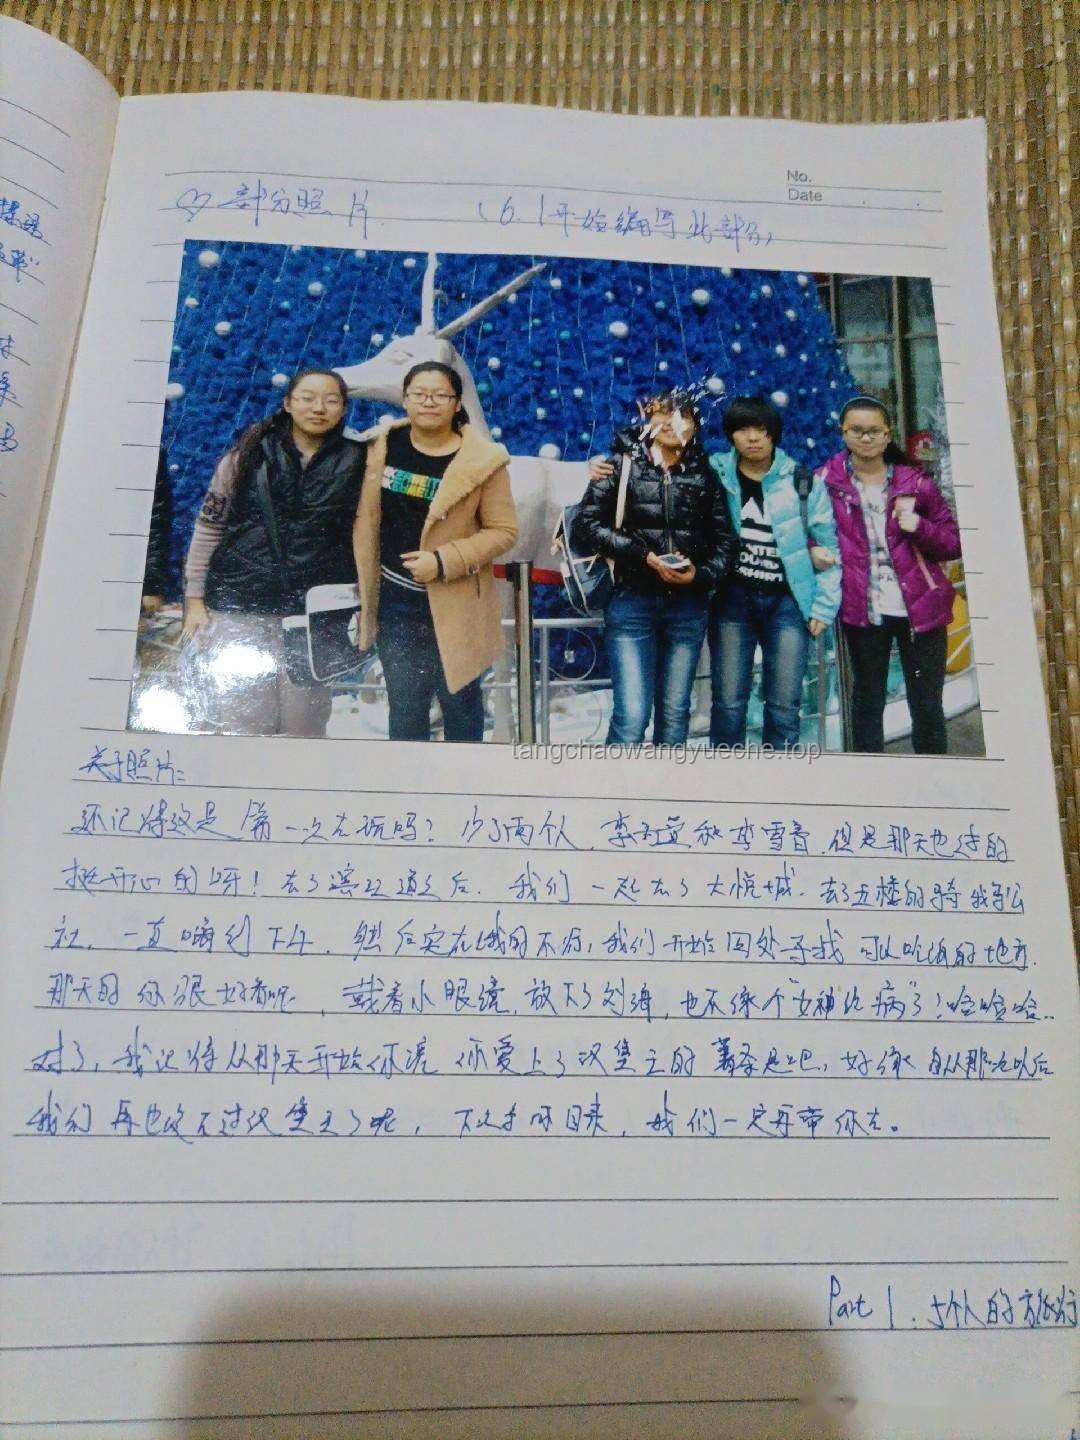 No.
Date
部分照片 (6.1开始编写此部分)
关于照片:
还记得这是第一次去玩吗?少了两个人,李雪音,但是那天也过的
挺开心的呀!去了滨江道之后,我们一起去了大悦城,去了五楼的骑鹅公
社,一直嗨到下午,然后实在饿的不行,我们开始四处寻找可以吃饭的地方,
那天的你很好看呢,戴着小眼镜,放下了刘海,也不像个"女神经病"了!哈哈哈..
对了,我记得从那天开始你说你爱上了汉堡王的薯条是吧,好像自从那次以后
我们再也没去过汉堡王了呢,下次等你回来,我们一定再带你去。
Part 1. 5个人的旅行
tangchaowangyueche.top